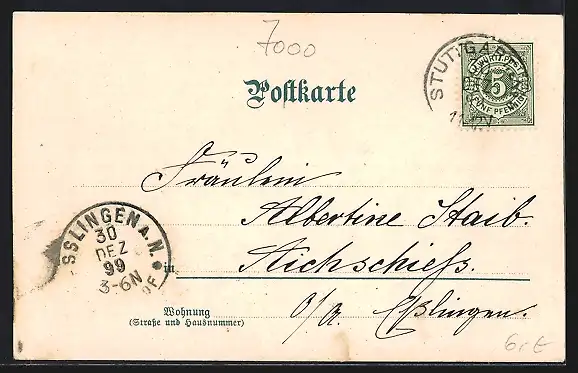 7000
Postkarte
STUTTGAR
K. WÜRTT. POST
5
FÜNF PFENNIG
Fräulein
Albertine Staib.
in Aichschieß.
O/A. Eßlingen.
SSLINGEN A. N.
30
DEZ
99
3-6N
Wohnung
(Straße und Hausnummer)